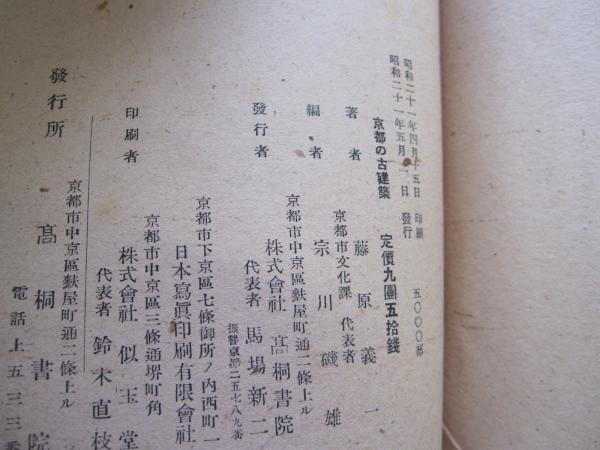 昭和二十一年四月十五日 印刷
昭和二十一年五月一日 發行
五〇〇〇部
京都の古建築 定價九圓五拾錢
著者 藤原義一
編者 京都市文化課 代表者 宗川磯雄
發行者 京都市中京區麩屋町通二條上ル
株式會社 高桐書院
代表者 馬場新二
振替京都二五七八九番
京都市下京區七條御所ノ内西町一
日本寫眞印刷有限會社
印刷者 京都市中京區三條通堺町角
株式會社 似玉堂
代表者 鈴木直枝
發行所 京都市中京區麩屋町通二條上ル
髙桐書院
電話上五三三